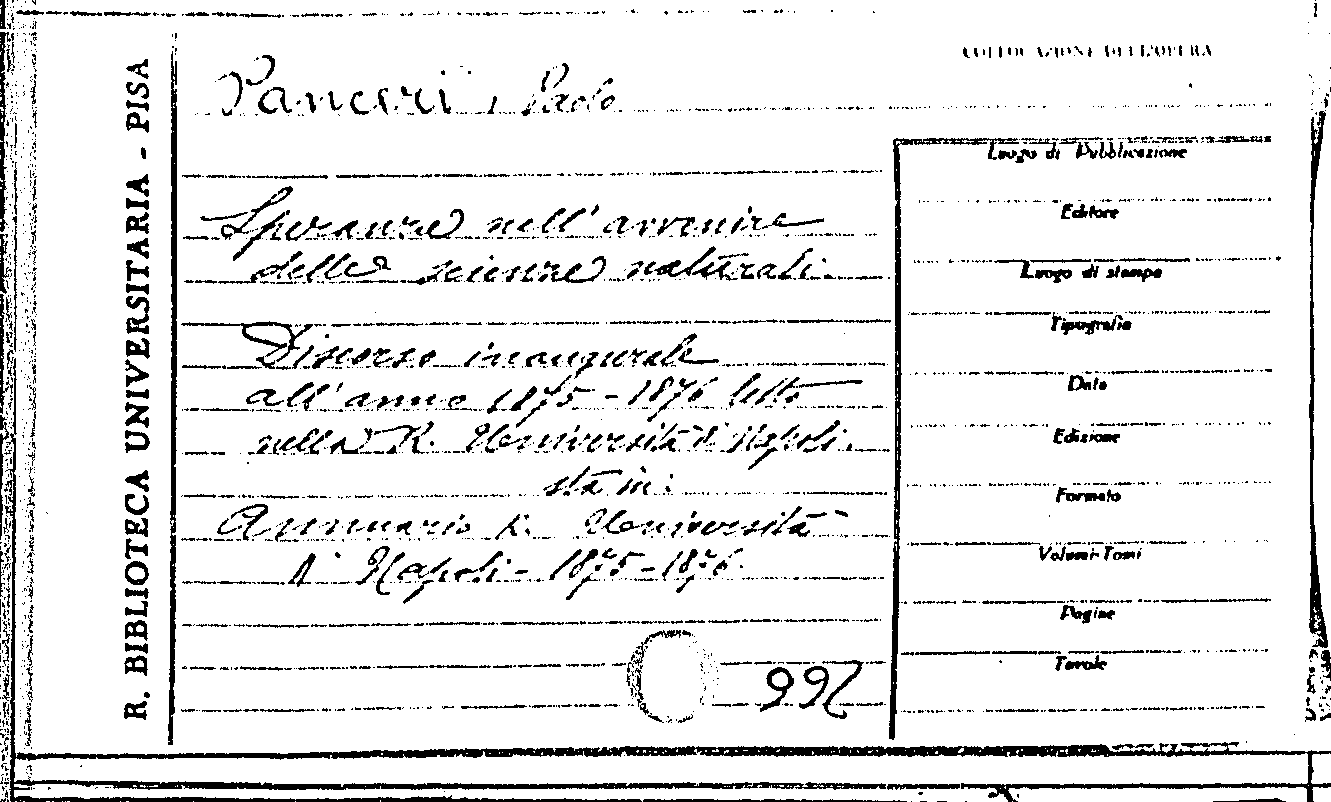 R. BIBLIOTECA UNIVERSITARIA - PISA
COLLOCAZIONE DELL'OPERA
Panceri, Paolo
Speranze nell'avvenire
delle scienze naturali.
Discorso inaugurale
all'anno 1875-1876 letto
nella R. Università di Napoli.
sta in:
Annuario R. Università
di Napoli - 1875-1876.
992
Luogo di Pubblicazione
Editore
Luogo di stampa
Tipografia
Data
Edizione
Formato
Volumi-Tomi
Pagine
Tavole